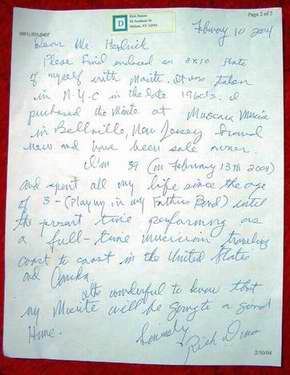 Page 2 of 3
D
February 10 2004
Dear Mr.
Please find enclosed an 8x10
of myself with Morite. It was taken
in N.Y.C in the late 1960's. I
purchased the Morite at Muscara Music
in Bellville, New Jersey Brand
new and have been sole owner.
I'm 59 (in February 13th 2004)
and spent all my life since the age
of 3 - (Playing in my Fathers Band) until
the present time performing as
a full-time musician traveling
coast to coast in the United States
and Canada.
wonderful to know that
my Morite will be going to a good
Home.
Sincerely
Rich
2/10/04